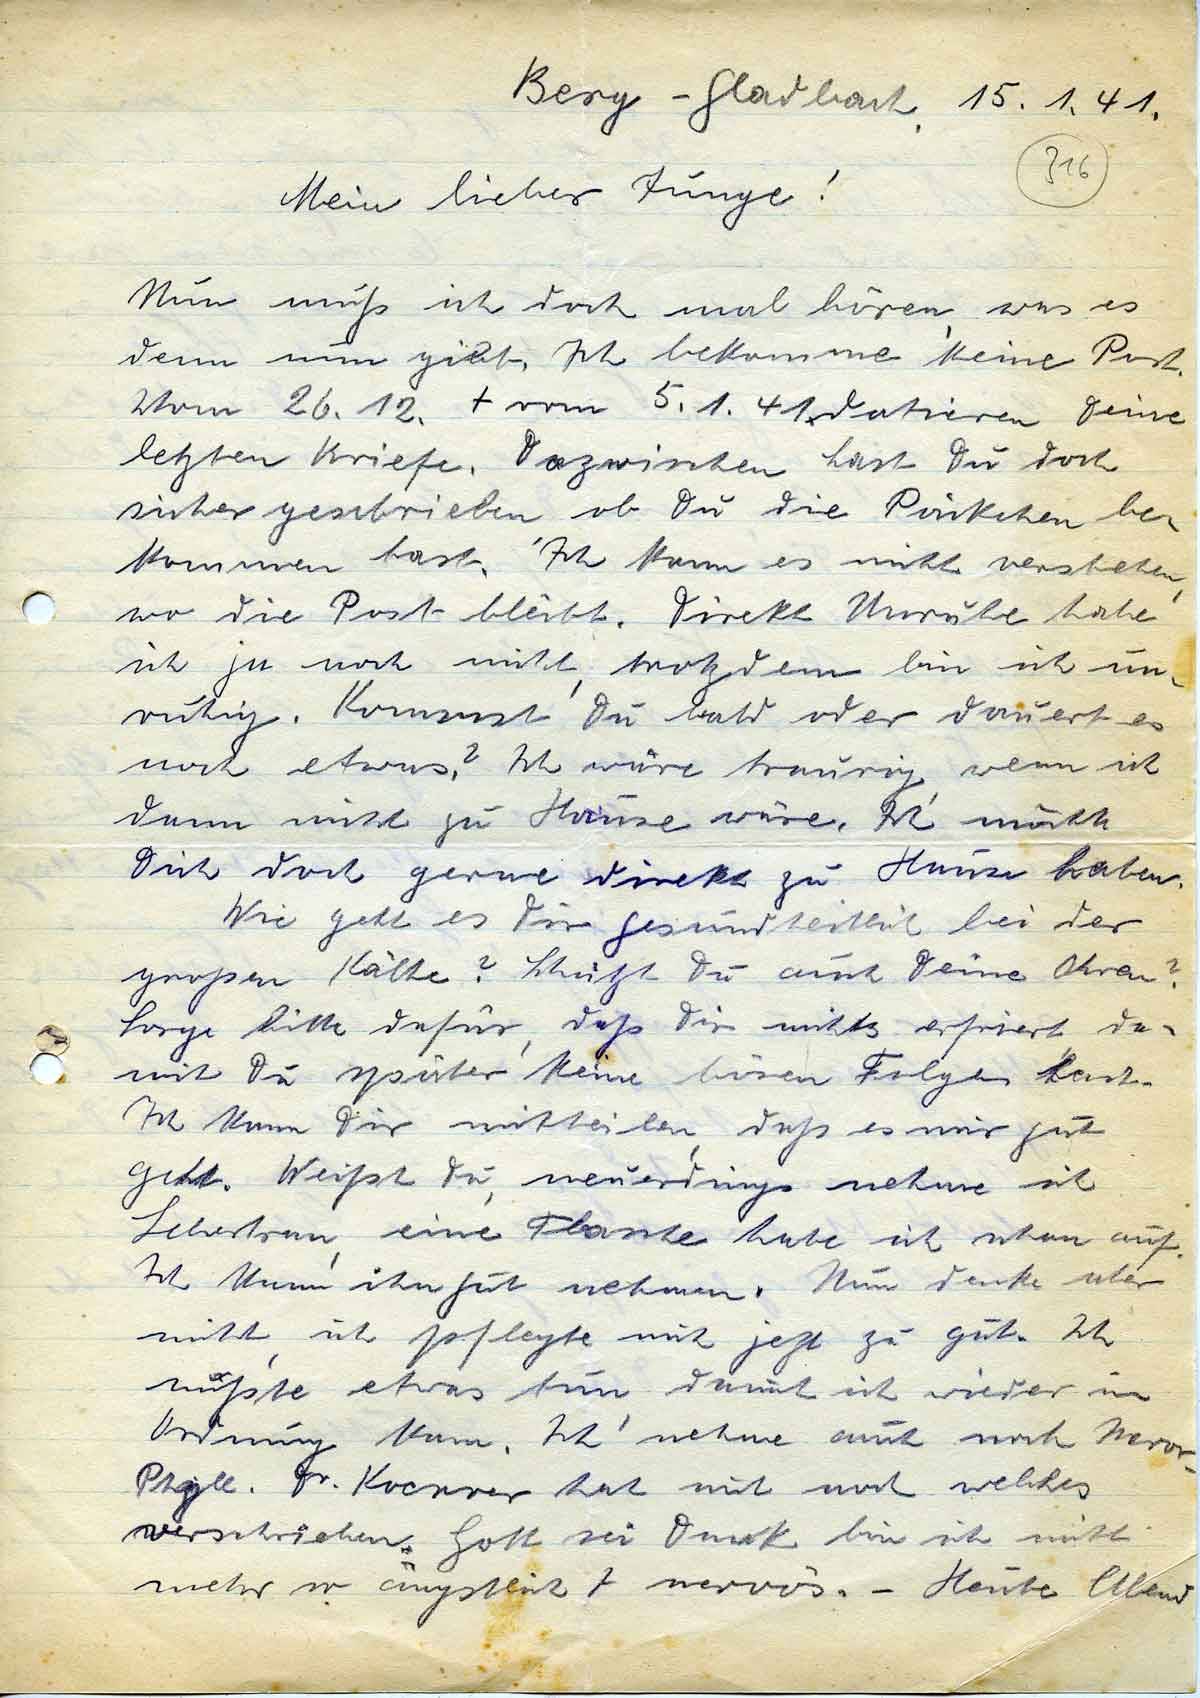 Berg-Gladbach, 15. 1. 41.
316
Mein lieber Junge!
Nun muß ich doch mal hören, was es
denn nun gibt. Ich bekomme keine Post.
Vom 26. 12. + vom 5. 1. 41. datieren Deine
letzten Briefe. Dazwischen hast Du doch
sicher geschrieben ob Du die Päckchen be-
kommen hast. Ich kann es nicht verstehen,
wo die Post bleibt. Direkt Unruhe habe
ich ja noch nicht, trotzdem bin ich un-
ruhig. Kommst Du bald oder dauert es
noch etwas? Ich wäre traurig, wenn ich
dann nicht zu Hause wäre. Ich möchte
Dich doch gerne direkt zu Hause haben.
Wie geht es Dir gesundheitlich bei der
großen Kälte? Schützt Du auch Deine Ohren?
Sorge bitte dafür, daß Dir nichts erfriert, da-
mit Du später keine bösen Folgen hast.
Ich kann Dir mitteilen, daß es mir gut
geht. Weißt Du, neuerdings nehme ich
Lebertran, eine Flasche habe ich schon auf.
Ich kann ihn gut nehmen. Nun denke aber
nicht, ich pflegte mich jetzt zu gut. Ich
mußste etwas tun damit ich wieder in
Ordnung kam. Ich nehme auch noch
Dr. hat mich noch welches
verschrieben. Gott sei Dank bin ich nicht
mehr so ängstlich + nervös. - Heute Abend